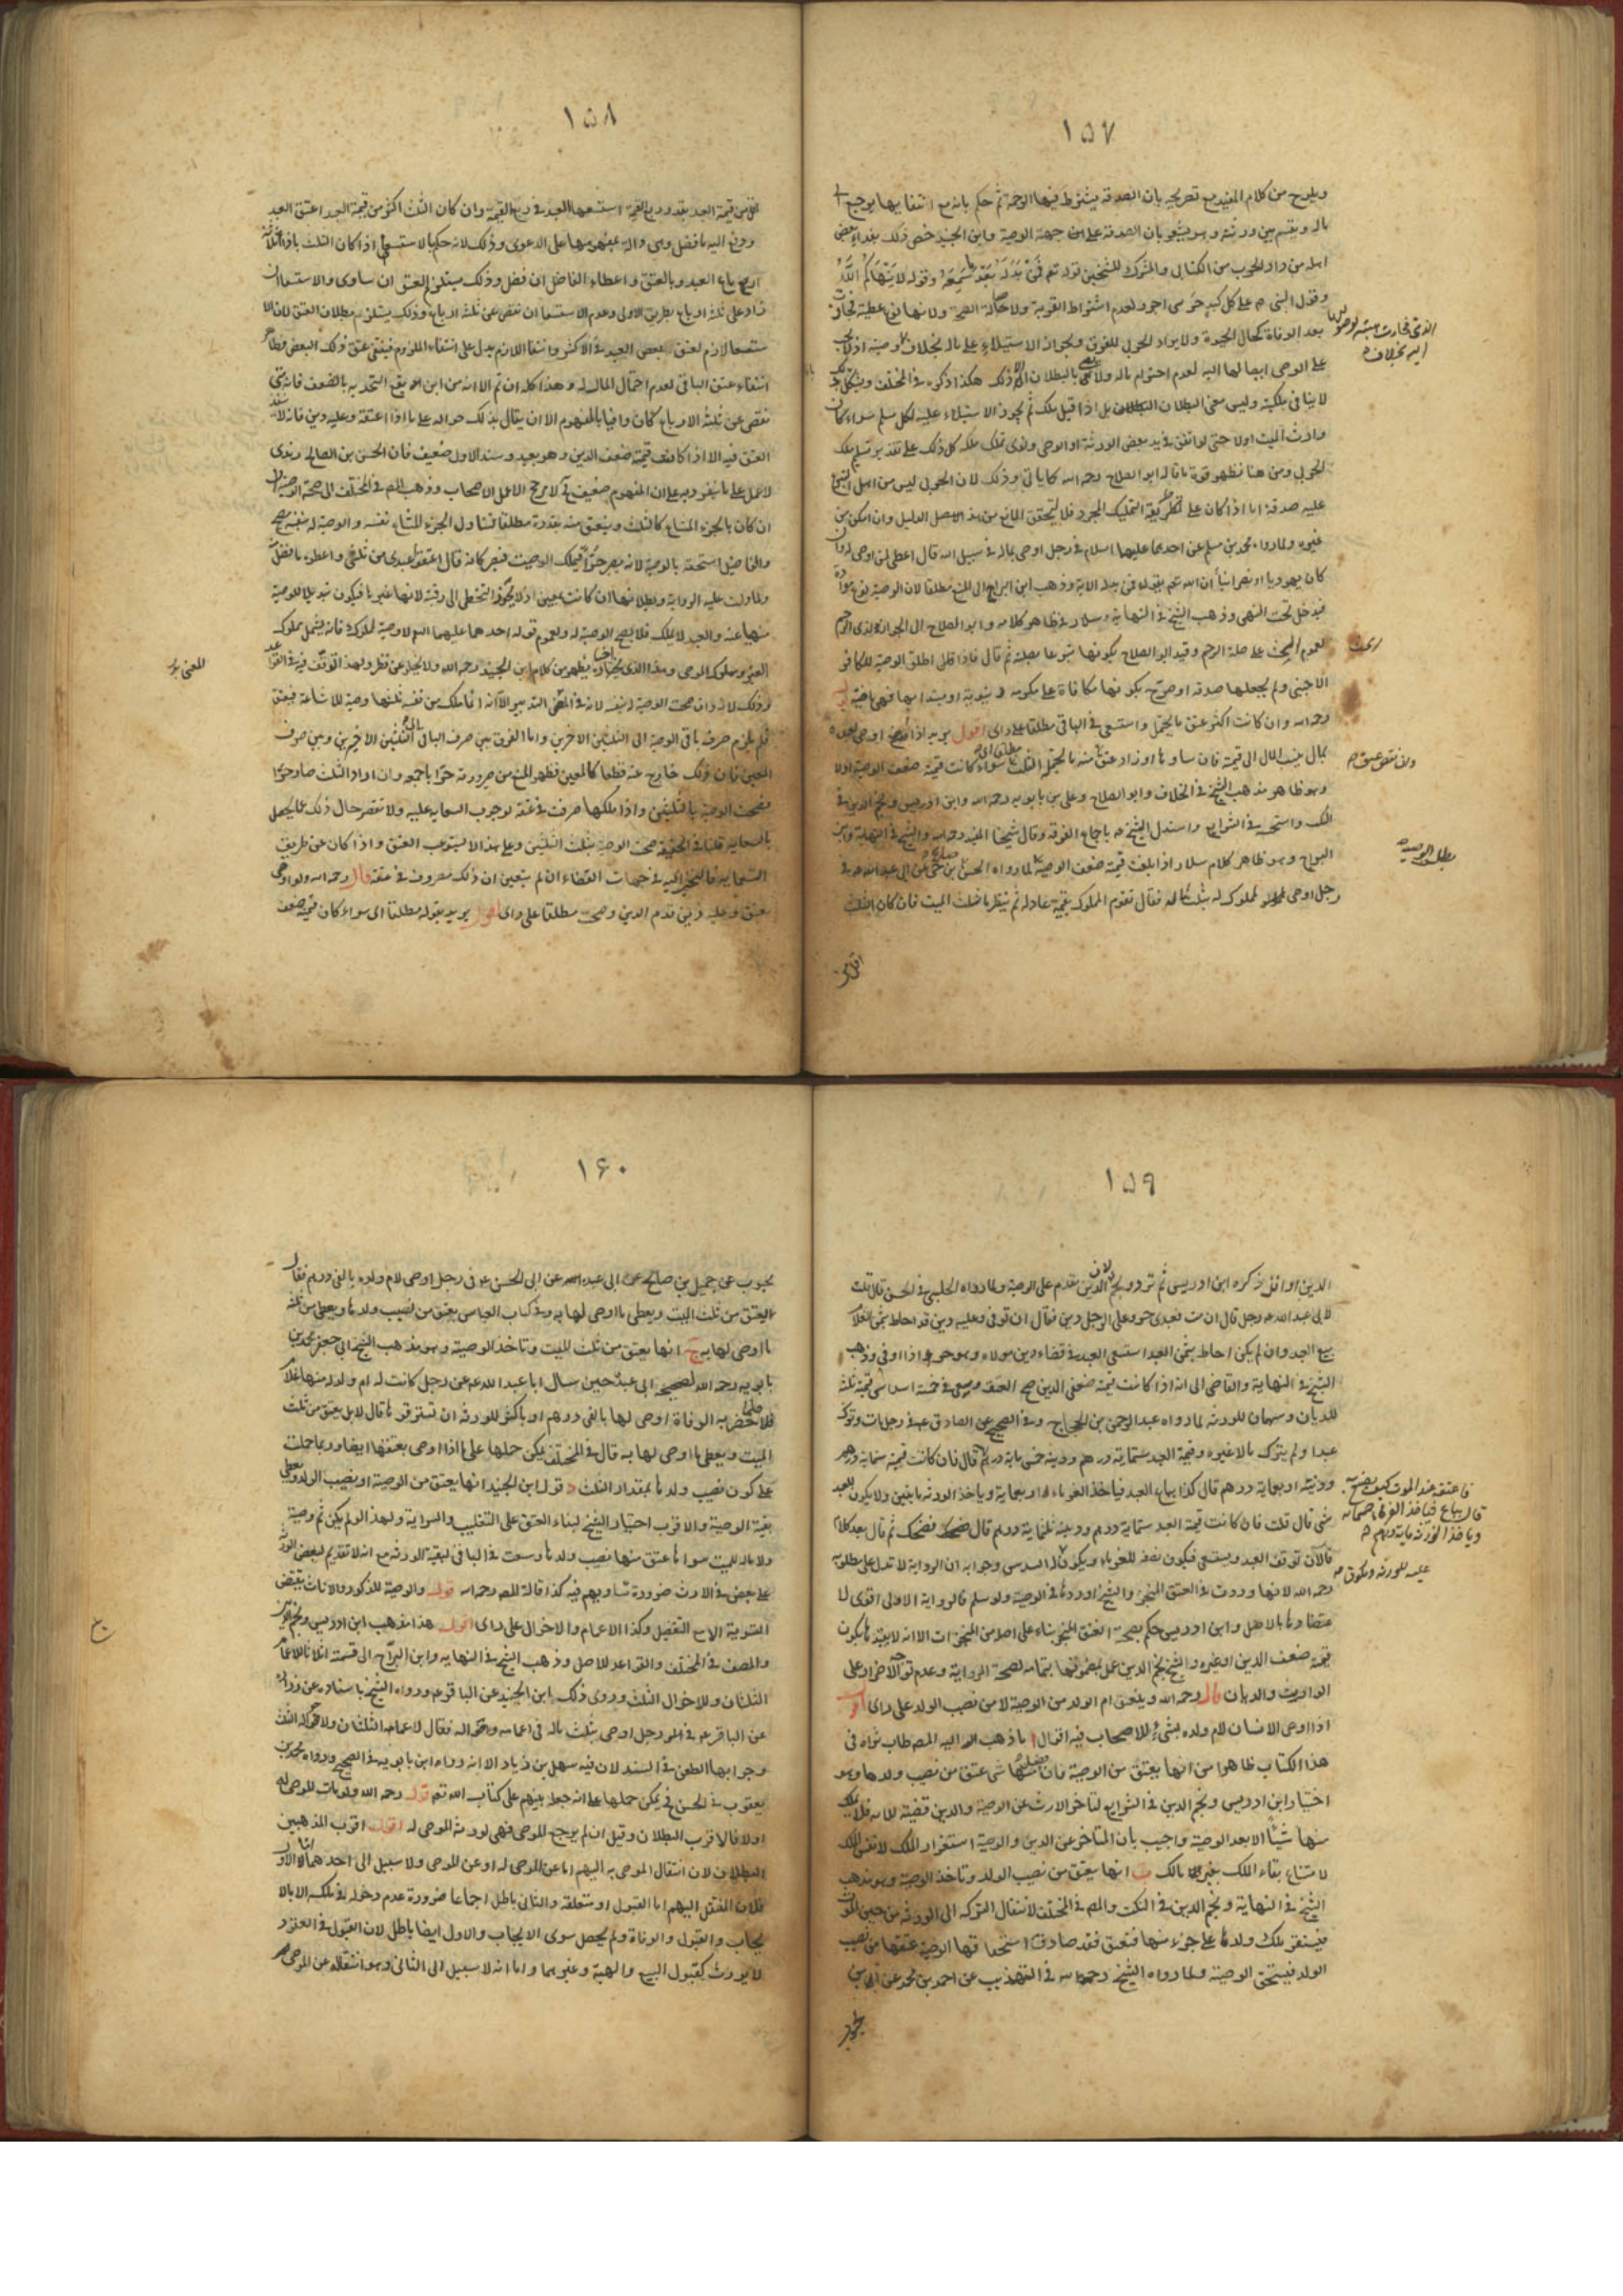 ١٥٧
ويلوح من كلام المفيد مع تصريحه بان الصدقة يشترط فيها الرحمة ثم حكم بانه مع انتفائها يرجع
ماله ويقسم بين ورثته وهو يشعر بان الصدقة على من جهة الوصية وابن الجنيد خص ذلك بفداء بعض
اهله من دار الحرب من الكتابى والمشرك للشيخين قوله تعم فمن بدله بعد ما سمعه وقوله لا ينهاكم الله
وقول النبى ص على كل كبد حرى اجر ولعدم اشتراط القربة ولاصالة الصحة ولانها نوع عطية فجازت
بعد الوفاة كحال الحيوة ولا يراد الحربى للفرق وبجواز الاستيلاء على ماله بخلاف
على الوصى ايصالها اليه لعدم احترام ماله ولا معنى بالبطلان الا ذلك هكذا ذكره فى المختلف
لا ينافى ملكيته وليس معنى البطلان بل اذا قبل ملك ثم يجوز الاستيلاء عليه لكل مسلم سواء كان
وارث الميت اولا حتى لو اتفق فى يد بعض الورثة او الوصى ونوى تملك ملكه كل ذلك على تقدير تسليم ملك
الحربى ومن هنا تظهر قوة ما قاله ابو الصلاح رحمه الله كما ياتى وذلك لان الحربى ليس من اهل
عليه صدقة اما اذا كان على طريقة التمليك المجرد فلا لتحقق المانع من هذا الاصل الدليل وان امكن من
غيره ولما رواه محمد بن مسلم عن احدهما عليهما السلام فى رجل اوصى بماله فى سبيل الله قال اعطى لمن اوصى له وان
كان يهوديا او نصرانيا ان الله تعم يقول فمن بدله الاية وذهب ابن البراج الى المنع مطلقا لان الوصية نوع موادة
فيدخل تحت النهى وذهب الشيخ فى النهاية وسلار فى ظاهر كلامه وابو الصلاح الى الجواز لذى الرحم
لعموم الحث على صلة الرحم وقيد ابو الصلاح بكونها تبرعا بصلة ثم قال فاذا اطلق الوصية للكافر
الاجنبى ولم يجعلها صدقة او صرح بكونها مكافاة على مكرمة
رحمه الله وان كانت اكثر عتق ما يحتمل واستسعى فى الباقى مطلقا على راى اقول يريد اذا اوصى لعبده
بمال ينسب المال الى قيمته فان ساوتها او زاد عتق منه ما يحتمله الثلث سواء كانت قيمته ضعف الوصية اولا
وهو ظاهر مذهب الشيخ فى الخلاف وابو الصلاح وعلى بن بابويه رحمه الله وابن ادريس ونجم الدين فى
النكت واستحبه فى الشرايع واستدل الشيخ ره باجماع الفرقة وقال شيخنا المفيد رحمه الله والشيخ فى النهاية وابن
البراج وهو ظاهر كلام سلار اذا بلغت قيمته ضعف الوصية لما رواه الحسن بن صالح عن ابى عبد الله ع فى
رجل اوصى لمملوك له بثلث ماله فقال تقوم المملوك بقيمة عادلة ثم ينظر ما ثلث الميت فان كان الثلث
اقل من
١٥٨
اقل من قيمة العبد بقدر ربع القيمة استسعى العبد فى ربع القيمة وان كان الثلث اكثر من قيمة العبد اعتق العبد
ودفع اليه ما فضل وهى دالة بمفهومها على الدعوى وذلك لانه حكم بالاستسعاء اذا كان الثلث بازاء ثلاثة
ارباع العبد وبالعتق واعطاء الفاضل ان فضل وذلك يستلزم العتق ان ساوى والاستسعاء ان
زاد على ثلثة ارباع بطريق الاولى وعدم الاستسعاء ان نقص عن ثلثة ارباع وذلك يستلزم بطلان العتق لان الا
ستسعاء لازم لعتق بعض العبد فى الاكثر وانتفاء اللازم يدل على انتفاء الملزوم فينتفى عتق ذلك البعض
انتفاء عتق الباقى لعدم احتمال المال له وهذا كله ان تم الا انه من ابن لم يقع التحديد بالضعف فانه متى
نقص عن ثلثة الارباع كان وافيا بالمفهوم الا ان يقال بذلك حوالة على ما اذا اعتقه وعليه دين فانه لا
العتق فيه الا اذا كانت قيمته ضعف الدين وهو بعيد وسند الاول ضعيف فان الحسن بن الصالح زيدى
لا عمل على ما ينفرد به على ان المفهوم ضعيف لا مرجح الاصل الاصحاب وذهب المص فى المختلف الى صحة الوصية
ان كان بالجزء المشاع كالثلث وينعتق منه بقدره مطلقا لتناول الجزء المشاع نفسه والوصية له بنفسه تصح
والفاضل استحقه بالوصية لانه يصير حرا فيملك الوصية فيصير كانه قال اعتقوا عبدى من ثلثى واعطوه ما فضل
ولما دلت عليه الرواية وبطلانها ان كانت بمعين اذ لا يجوز التخطى الى رقبته لانها غير ما فيكون تبديلا للوصية
منهيا عنه والعبد لا يملك فلا يصح الوصية له ولعموم قوله احدهما عليهما السلام لا وصية لمملوك فانه يشمل مملوك
الغير ومملوك الموصى وهذا الذى يظهر من كلام ابن الجنيد رحمه الله ولا يخلو عن نظر ولهذا توقف فيه فى القواعد
وذلك لانه وان صحت الوصية له بنفسه لانه فى المعنى التدبير الا انه انما ملك من نفسه ثلثها وصية للاشاعة فيعتق
فلم يلزم صرف باقى الوصية الى الثلثين الاخرين واما الفرق بين صرف الباقى الى الثلثين الاخيرين وبين صرف
المعين فان ذلك خارج عنه قطعا كالمعين فظهر المنع من صيرورته حرا باجمعه وان اراد الثلث صار حرا
فصحت الوصية بالثلثين واذا ملكها صرفت فى عتقه لوجوب السعاية عليه ولا تقصر حال ذلك عما يحصل
بالسعاية قلنا فى الحقيقة صحت الوصية بثلث الثلثين وعلى هذا لا يستوعب العتق واذا كان عن طريق
السعاية فالتخيير اليه فى جهات القضاء ان لم يتعين ان ذلك مصروف فى عتقه قال رحمه الله ولو اوصى
بعتق وعليه دين قدم الدين وصح مطلقا على راى اقول يريد بقوله مطلقا اى سواء كان قيمته ضعف
١٥٩
الدين او اقل ذكره ابن ادريس ثم تردد نجم الدين لان الدين مقدم على الوصية ولما رواه الحلبى فى الحسن قال قلت
لابى عبد الله ع رجل قال ان مت فعبدى حر وعلى الرجل دين فقال ان توفى وعليه دين قد احاط بثمن الغلام
بيع العبد وان لم يكن احاط بثمن العبد استسعى العبد فى قضاء دين مولاه وهو حر اذا اوفى وذهب
الشيخ فى النهاية والقاضى الى انه اذا كانت قيمته ضعفى الدين صح العتق وسعى فى خمسة اسداس قيمته ثلثة
للديان وسهمان للورثة لما رواه عبد الرحمن بن الحجاج وفى الصحيح عن الصادق ع فى رجل مات وترك
عبدا ولم يترك مالا غيره وقيمة العبد ستماية درهم ودينه خمس ماية درهم قال فان كانت قيمته ستماية درهم
ودينه اربعماية درهم قال كذا يباع العبد فياخذ الغرماء اربعماية وياخذ الورثة مايتين ولا يكون للعبد
شى قال قلت فان كانت قيمة العبد ستماية درهم ودينه ثلثماية درهم قال فضحك ثم قال بعد كلام
فالان توقف العبد ويستسعى فيكون نصفه للغرماء ويكون له السدس وجوابه ان الرواية لا تدل على مطلوبه
رحمه الله لانها وردت فى العتق المنجز والشيخ اوردها فى الوصية ولو سلم فالرواية الاولى اقوى لا
عتضادها بالاصل وابن ادريس حكم بصحة العتق المنجز بناء على اصله من المنجزات الا انه لا يعتد بما يكون
قيمته ضعف الدين او غيره والشيخ نجم الدين عمل بمضمونها بتمامه لصحة الرواية وعدم توجه الاضرار على
الوارث والديان قال رحمه الله وينعتق ام الولد من الوصية لا من نصيب الولد على راى اقول
اذا اوصى الانسان لام ولده بشىء للاصحاب فيه اقوال ا ما ذهب اليه المص طاب ثراه فى
هذا الكتاب ظاهرا من انها يعتق من الوصية فان فضل منها شى عتق من نصيب ولدها وهو
اختيار ابن ادريس ونجم الدين فى الشرايع لتاخر الارث عن الوصية والدين قضية للاية فلا يملك
منها شيئا الا بعد الوصية واجيب بان المتاخر عن الدين والوصية استقرار الملك لا نفس الملك
لامتناع بقاء الملك بغير مالك ب انها يعتق من نصيب الولد وتاخذ الوصية وهو مذهب
الشيخ فى النهاية ونجم الدين فى النكت والمص فى المختلف لانتقال التركة الى الورثة من حين الموت
فيستقر ملك ولدها على جزء منها فتعتق فقد صادف استحقاقها الوصية عتقها من نصيب
الولد فيستحق الوصية ولما رواه الشيخ رحمه الله فى التهذيب عن احمد بن محمد عن ابن
محبوب
١٦٠
محبوب عن جميل بن صالح عن ابى عبيده عن ابى الحسن ع فى رجل اوصى لام ولده بالفى درهم فقال
العتق من ثلث الميت ويعطى ما اوصى لها به وفى كتاب العباس يعتق من نصيب ولدها ويعطى من ثلثه
ما اوصى لها به ج انها يعتق من ثلث الميت وتاخذ الوصية وهو مذهب الشيخ ابى جعفر محمد بن
بابويه رحمه الله لصحيحة ابى عبيده حين سال ابا عبد الله ع عن رجل كانت له ام ولد له منها غلام
فلما حضرته الوفاة اوصى لها بالفى درهم او باكثر للورثة ان تسترقوها قال لا بل يعتق من ثلث
الميت ويعطى ما اوصى لها به قال فى المختلف يمكن حملها على ما اذا اوصى بعتقها ايضا وربما حملت
على كون نصيب ولدها بمقدار الثلث د قول ابن الجنيد انها يعتق من الوصية او نصيب الولد وتعطى
بقية الوصية والاقرب اختيار الشيخ لبناء العتق على التغليب والسراية ولهذا لو لم يكن ثم وصية
ولا مال للميت سواها عتق منها نصيب ولدها وسعت فى الباقى لبقية الورثة مع انه لا تقديم لبعض الورثة
على بعض فى الارث ضرورة تساويهم فيه كذا قاله المص رحمه الله قوله والوصية للذكور والاناث يقتضى
التسوية الا مع التفضيل وكذا الاعمام والاخوال على راى اقول هذا مذهب ابن ادريس ونجم الدين
والمصنف فى المختلف والقواعد للاصل وذهب الشيخ فى النهاية وابن البراج الى قسمته اثلاثا للاعمام
الثلثان وللاخوال الثلث وروى ذلك ابن الجنيد عن الباقر ع ورواه الشيخ باسناده عن زراره
عن الباقر ع فى رجل اوصى بثلث ماله فى اعمامه واخواله فقال لاعمامه الثلثان ولاخواله الثلث
وجوابها الطعن فى السند لان فيه سهل بن زياد الا انه رواه ابن بابويه فى الصحيح ورواه محمد بن
يعقوب فى الحسن فيمكن حملها على انه جعله بينهم على كتاب الله تعم قوله رحمه الله ولو مات الموصى له
اولا فالاقرب البطلان وقيل ان لم يرجع الموصى فهى لورثة الموصى له اقول اقرب المذهبين
البطلان لان انتقال الموصى به اليهم اما عن الموصى له او عن الموصى ولا سبيل الى احدهما اما الاول
فلان المنتقل اليهم اما القبول او متعلقه والثانى باطل اجماعا ضرورة عدم دخوله فى ملكه الا بالا
يجاب والقبول والوفاة ولم يحصل سوى الايجاب والاول ايضا باطل لان القبول فى العقود
لا يورث كقبول البيع والهبة وغيرهما واما انه لا سبيل الى الثانى وهو انتقاله عن الموصى